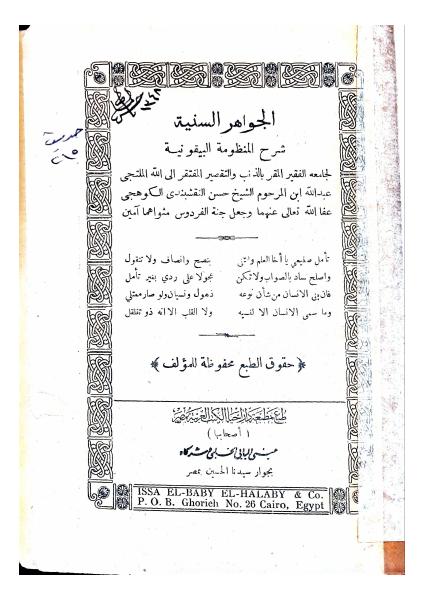 الجواهر السنية
شرح المنظومة البيقونية
لجامعه الفقير المقر بالذنب والتقصير المفتقر الى الله الملتجى
عبدالله ابن المرحوم الشيخ حسن النقشبندى الكوهجى
عفا الله تعالى عنهما وجعل جنة الفردوس مثواهما آمين
تأمل صنيعى يا أخا العلم واتئ بنصح وانصاف ولا تتقول
واصلح ساد بالصواب ولا تكن عجولا على ردي بغير تأمل
فان بنى الانسان من شأن نوعه ذهول ونسيان ولو صار ممتلي
وما سمى الانسان الا لنسيه ولا القلب الا انه ذو تقلقل
﴿حقوق الطبع محفوظة للمؤلف﴾
طبع بمطبعة دار إحياء الكتب العربية بمصر
( أصحابها )
عيسى البابى الحلبى وشركاه
بجوار سيدنا الحسين بمصر
ISSA EL-BABY EL-HALABY & Co.
P. O. B. Ghorieh No. 26 Cairo, Egypt